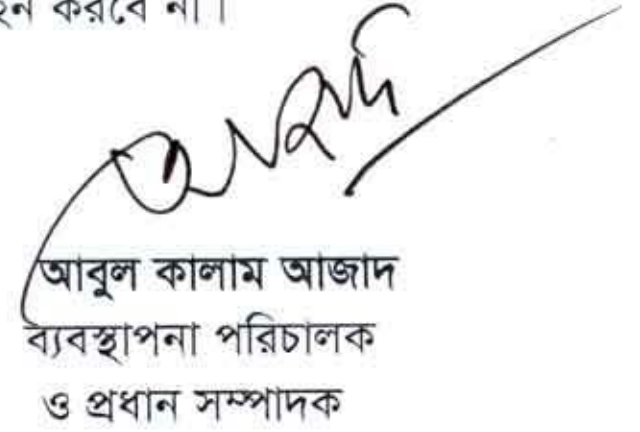 করবে না।
আবুল কালাম আজাদ
ব্যবস্থাপনা পরিচালক
ও প্রধান সম্পাদক